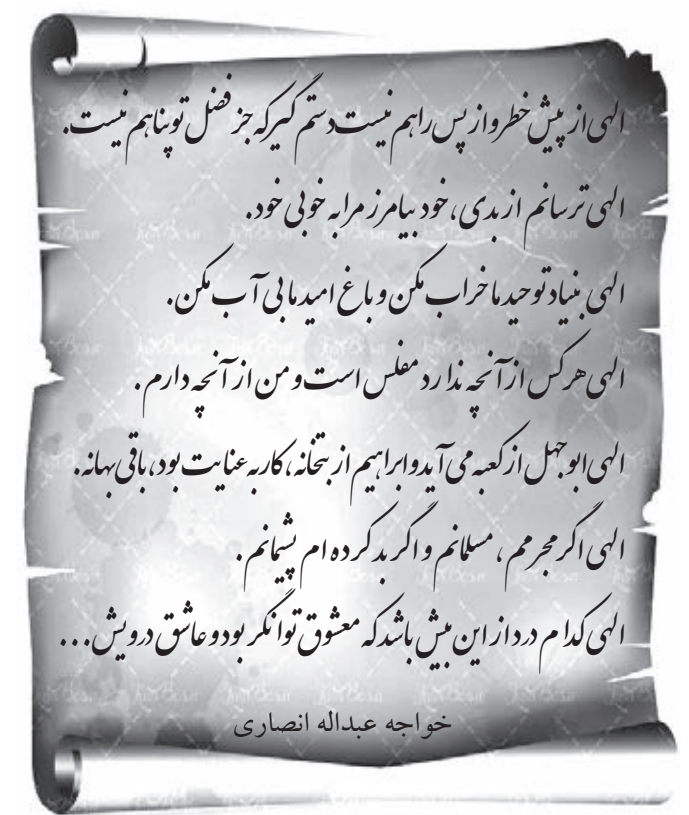 الهی از پیش خطر و از پس راهم نیست دستم گیر که جز فضل تو پناهم نیست.
الهی ترسانم از بدی، خود بیامرز مرا به خوبی خود.
الهی بنیاد توحید ما خراب مکن و باغ امید ما بی آب مکن.
الهی هرکس از آنچه ندارد مفلس است و من از آنچه دارم.
الهی ابوجهل از کعبه می آید و ابراهیم از بتخانه، کار به عنایت بود، باقی بهانه.
الهی اگر مجرمم، مسلمانم و اگر بد کرده ام پشیمانم.
الهی کدام درد از این بیش باشد که معشوق توانگر بود و عاشق درویش...
خواجه عبداله انصاری